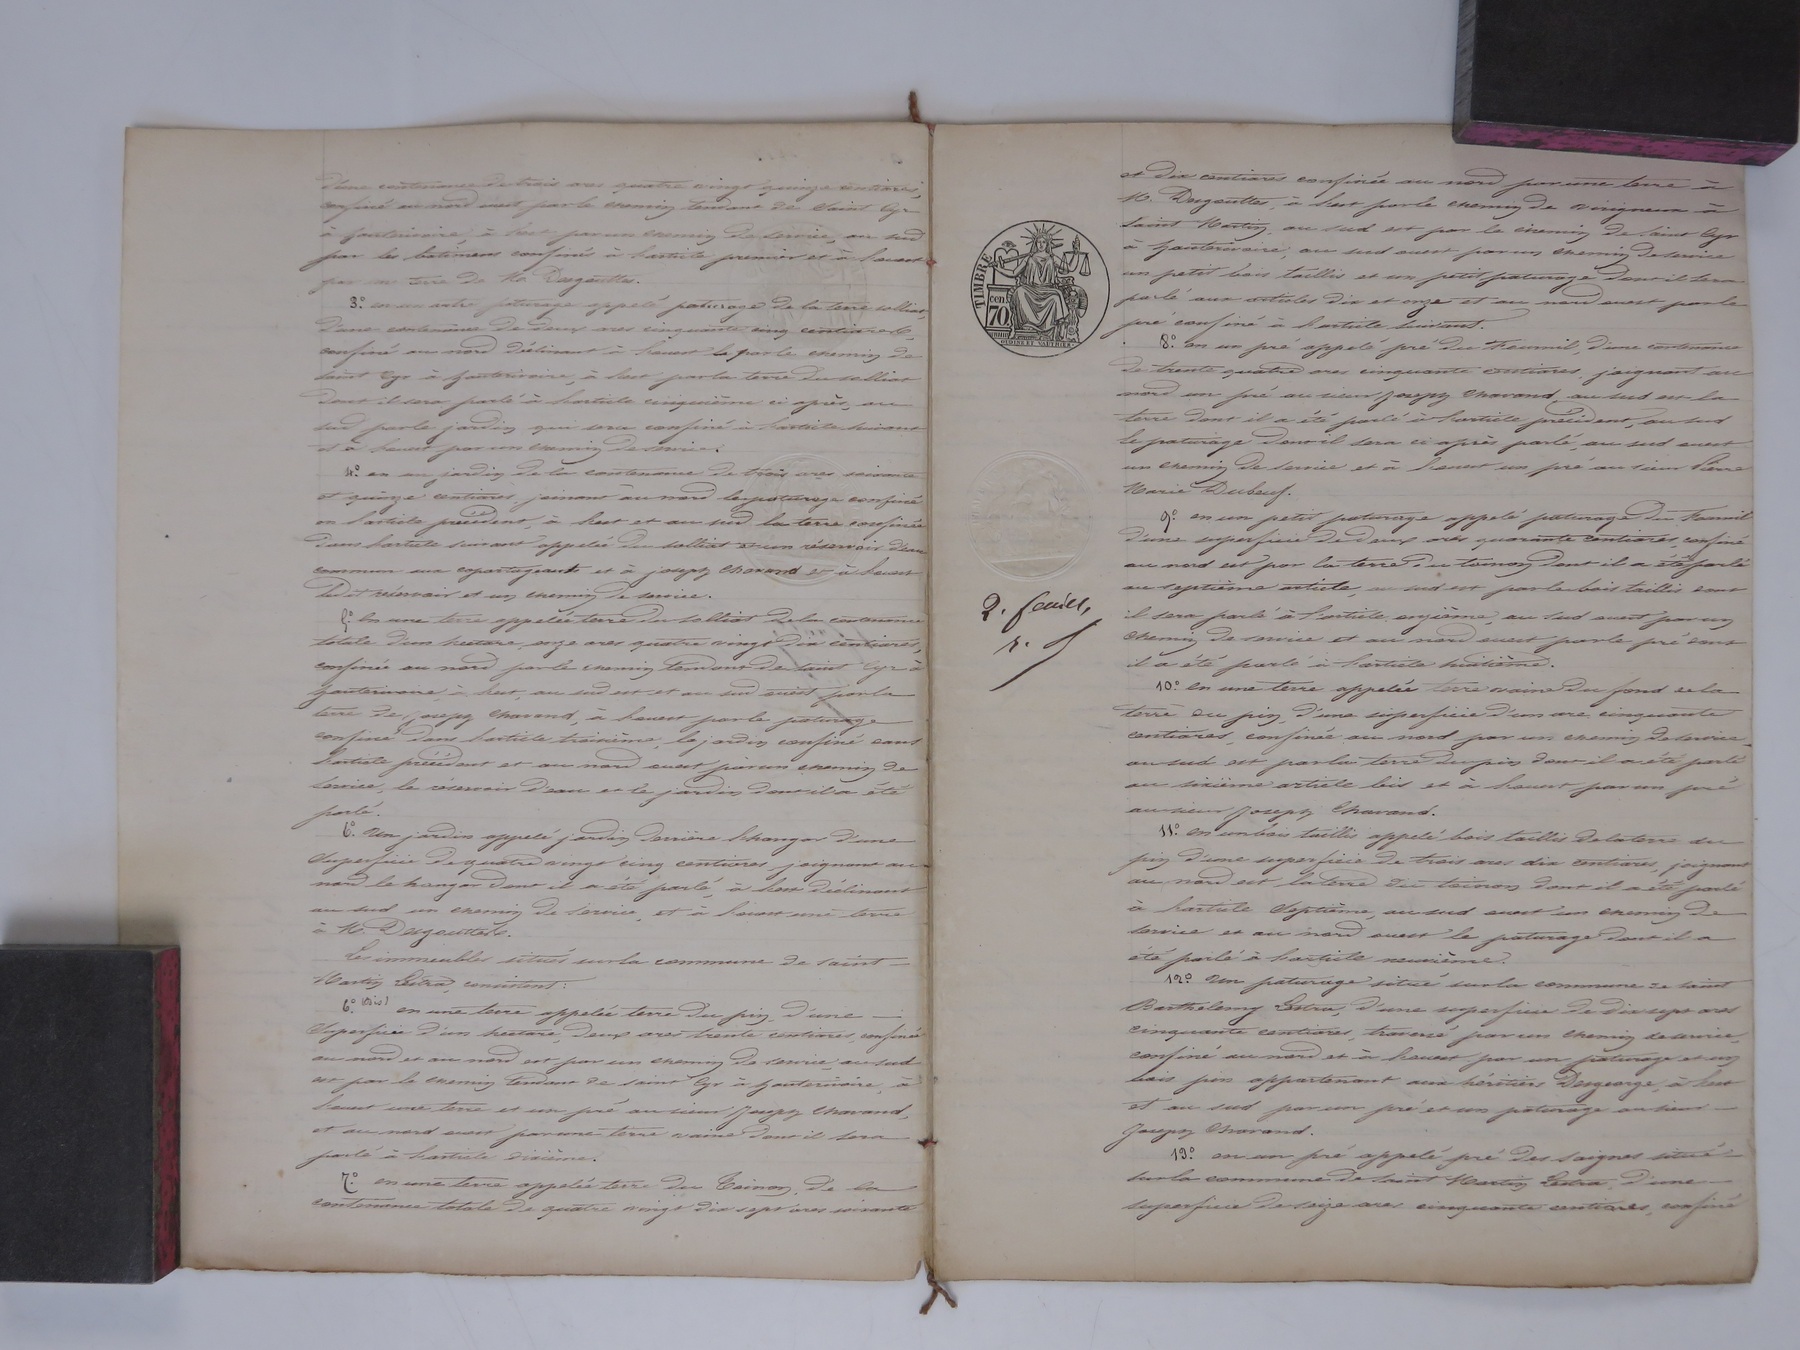 d'une contenance de trois ares quatre vingt quinze centiares,
confiné au nord ouest par le chemin tendant de Saint Cyr
à fonterivoire, à l'est par un chemin de service, au sud
par les batimens confinés à l'article premier et à l'ouest
par une terre de M. Desgaultes.
3.° en un autre paturage appelé paturage de la terre solliat,
d'une contenance de deux ares cinquante cinq centiares,
confiné au nord déclinant à l'ouest par le chemin de
saint Cyr à fonterivoire, à l'est par la terre du solliat
dont il sera parlé à l'article cinquième ci après, au
sud par le jardin qui sera confiné à l'article suivant
et à l'ouest par un chemin de service.
4.° en un jardin de la contenance de trois ares soixante
et quinze centiares, joignant au nord le paturage confiné
en l'article précédent, à l'est et au sud la terre confinée
dans l'article suivant appelée du solliat et un réservoir d'eau
commun aux copartageants et à joseph Chavand et à l'ouest
le dit réservoir et un chemin de service.
5.° En une terre appelée terre du solliat de la contenance
totale d'un hectare, onze ares quatre vingt dix centiares,
confinée au nord par le chemin tendant de saint Cyr à
fonterivoire, à l'est, au sud est et au sud ouest par la
terre de joseph Chavand, à l'ouest par le paturage
confiné dans l'article troisième, le jardin confiné dans
l'article précédent et au nord ouest par un chemin de
service, le réservoir d'eau et le jardin dont il a été
parlé.
6.° Un jardin appelé jardin derrière l'hangar d'une
superficie de quatre vingt cinq centiares, joignant au
nord le hangar dont il a été parlé, à l'est déclinant
au sud un chemin de service, et à l'ouest une terre
à M. Desgaultes.
Les immeubles situés sur la commune de Saint
Martin Lestra, consistent:
6.° (bis) en une terre appelée terre du pin, d'une
superficie d'un hectare, deux ares trente centiares, confinée
au nord et au nord est par un chemin de service, au sud
est par le chemin tendant de saint Cyr à fonterivoire, à
l'ouest une terre et un pré au sieur Joseph Chavand,
et au nord ouest par une terre vaine dont il sera
parlé à l'article dixième.
7.° en une terre appelée terre du Toinon, de la
contenance totale de quatre vingt dix sept ares soixante
TIMBRE
cen
70
2. feuill,
et dix centiares confinée au nord par une terre à
M. Desgaultes, à l'est par le chemin de virigneux à
saint Martin, au sud est par le chemin de saint Cyr
à fonterivoire, au sud ouest par un chemin de service
un petit bois taillis et un petit paturage dont il sera
parlé aux articles dix et onze et au nord ouest par le
pré confiné à l'article suivant.
8.° en un pré appelé pré du Fournil, d'une contenance
de trente quatre ares cinquante centiares, joignant au
nord un pré au sieur joseph Chavand, au sud est la
terre dont il a été parlé à l'article précédent, au sud
le paturage dont il sera ci après parlé, au sud ouest
un chemin de service et à l'ouest un pré au sieur Pierre
Marie Dubeuf.
9.° en un petit paturage appelé paturage du Fournil
d'une superficie de deux ares quarante centiares confiné
au nord est par la terre du toinon dont il a été parlé
au septième article, au sud est par le bois taillis dont
il sera parlé à l'article onzième, au sud ouest par un
chemin de service et au nord ouest par le pré dont
il a été parlé à l'article huitième.
10.° En une terre appelée terre vaine du fond de la
terre du pin, d'une superficie d'un are cinquante
centiares, confinée au nord par un chemin de service
au sud est par la terre du pin dont il a été parlé
au sixième article bis et à l'ouest par un pré
au sieur Joseph Chavand.
11.° en un bois taillis appelé bois taillis de la terre du
pin d'une superficie de trois ares dix centiares, joignant
au nord est la terre du toinon dont il a été parlé
à l'article septième, au sud ouest un chemin de
service et au nord ouest le paturage dont il a
été parlé à l'article neuvième.
12.° Un paturage situé sur la commune de saint
Barthélemy Lestra, d'une superficie de dix sept ares
cinquante centiares, traversé par un chemin de service,
confiné au nord et à l'ouest par un paturage et un
bois pin appartenant aux héritiers Desgeorge, à l'est
et au sud par un pré et un paturage au sieur
Joseph Chavand.
13.° en un pré appelé pré des saignes situé
sur la commune de saint Martin Lestra, d'une
superficie de seize ares cinquante centiares, confiné